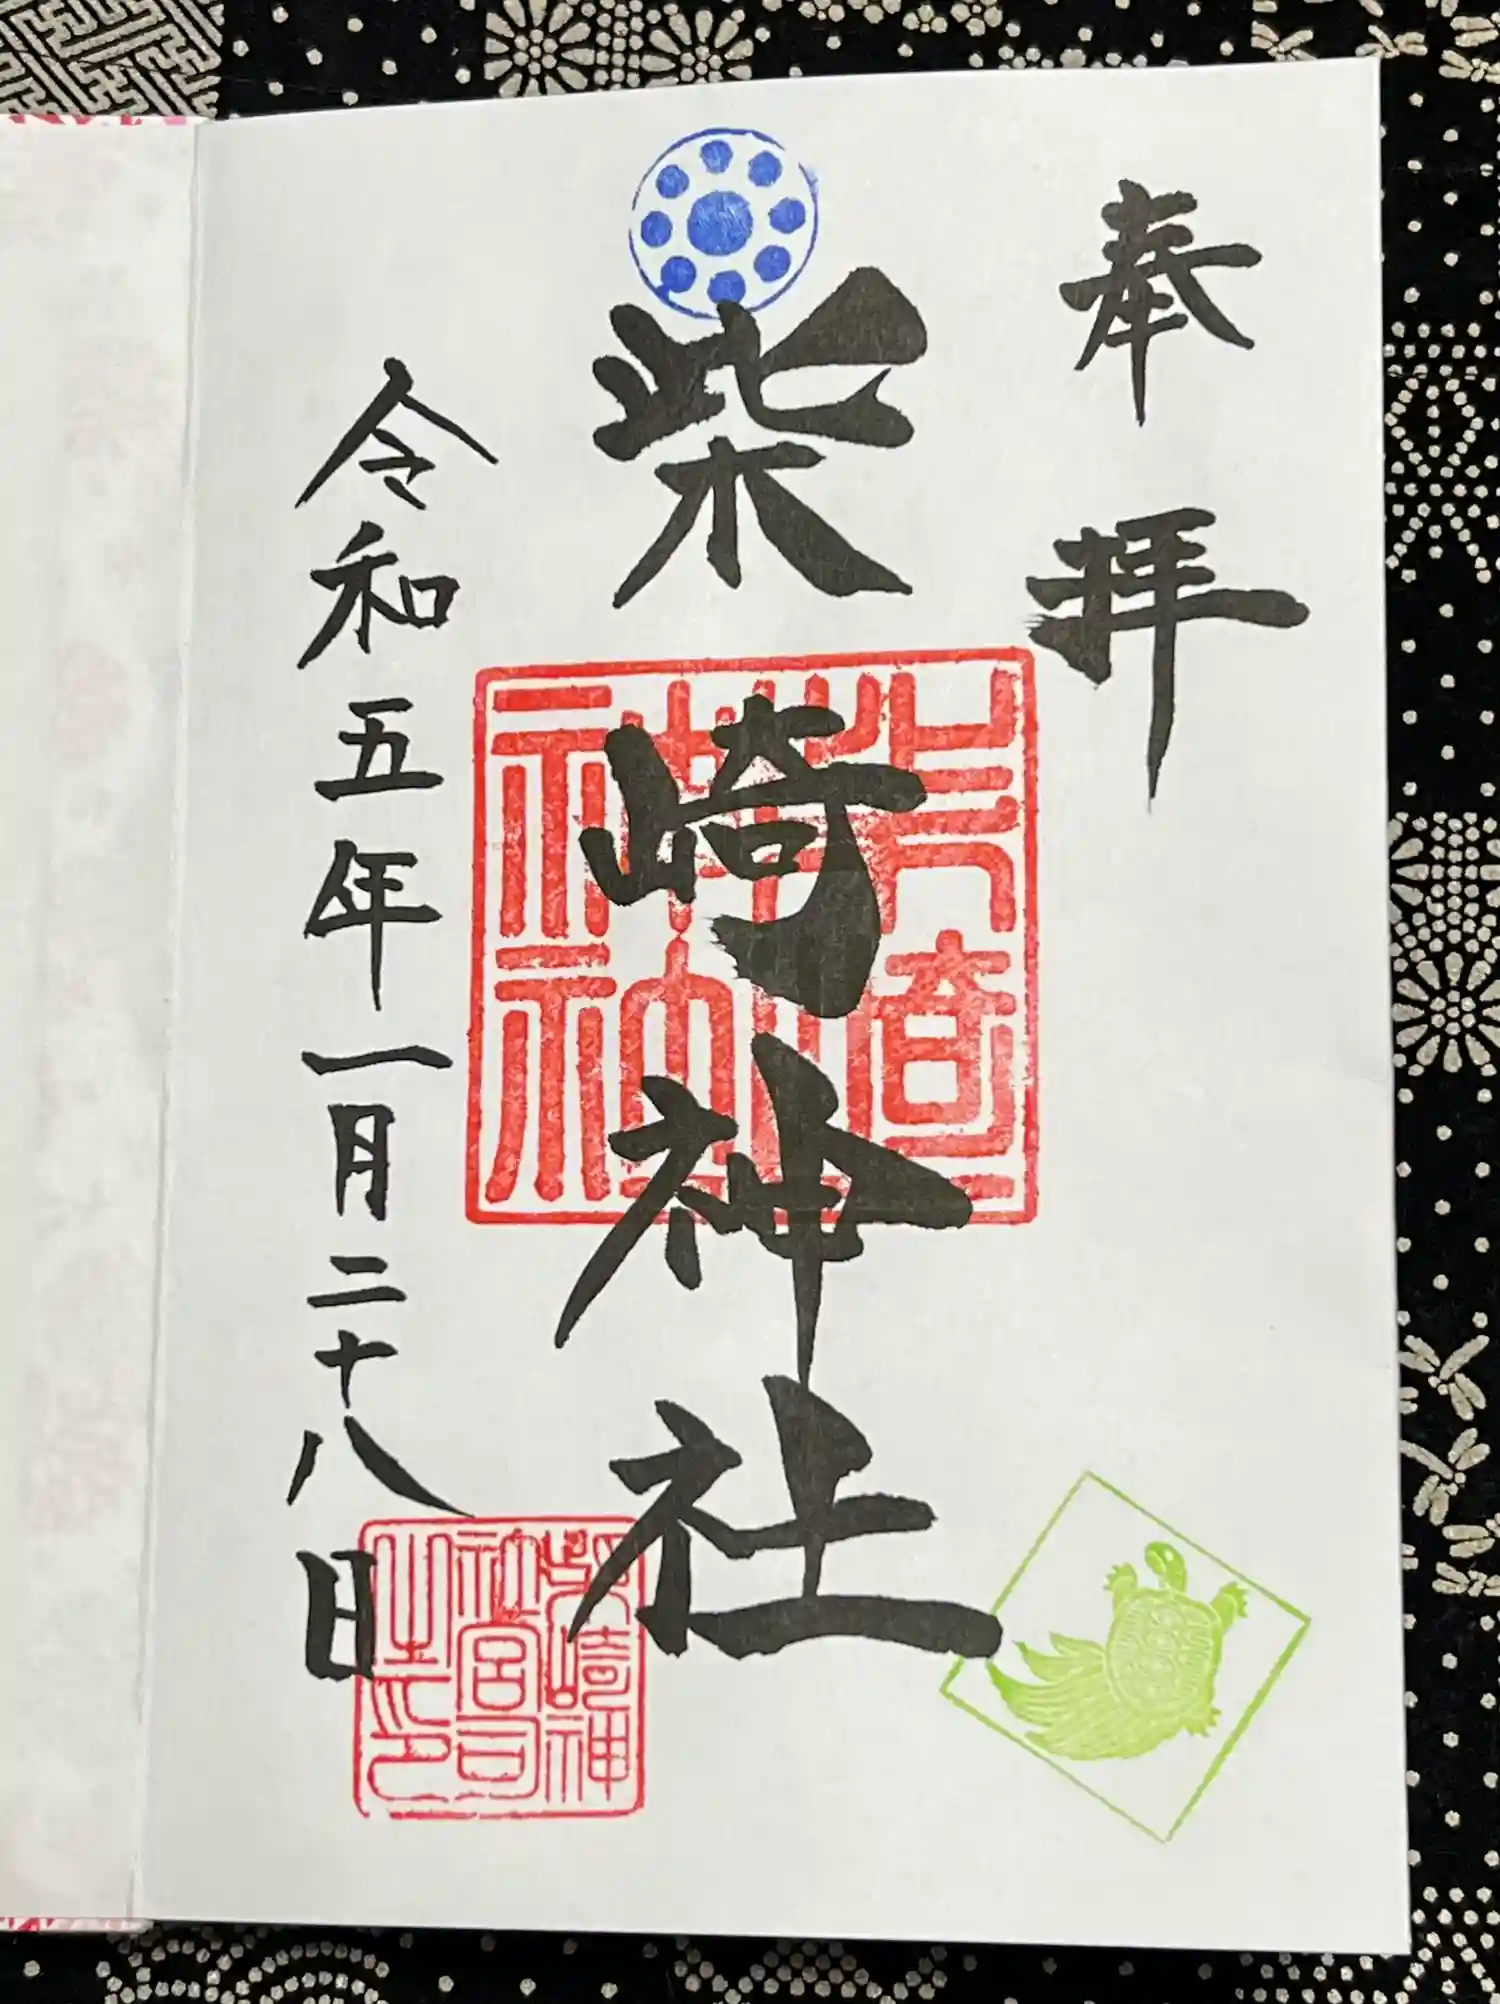 奉拝
柴崎神社
令和五年一月二十八日
柴崎神社
柴崎神
社宮司
之印